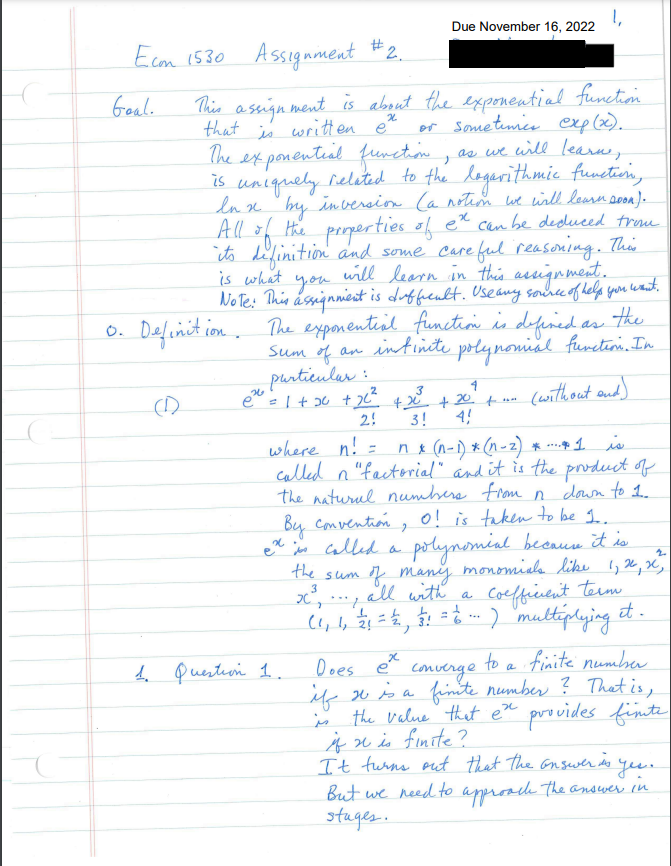 Due November 16, 2022
1,
Econ 1530 Assignment #2.
Goal. This assignment is about the exponential function
that is written e^x or sometimes exp(x).
The exponential function, as we will learn,
is uniquely related to the logarithmic function,
ln x by inversion (a notion we will learn soon).
All of the properties of e^x can be deduced from
its definition and some careful reasoning. This
is what you will learn in this assignment.
Note: This assignment is difficult. Use any source of help you want.
0. Definition. The exponential function is defined as the
sum of an infinite polynomial function. In
particular:
(1) e^x = 1 + x + x^2/2! + x^3/3! + x^4/4! + .... (without end)
where n! = n * (n-1) * (n-2) * ....* 1 is
called n "factorial" and it is the product of
the natural numbers from n down to 1.
By convention, 0! is taken to be 1.
e^x is called a polynomial because it is
the sum of many monomials like 1, x, x^2,
x^3, ..., all with a coefficient term
(1, 1, 1/2! = 1/2, 1/3! = 1/6 ...) multiplying it.
1. Question 1. Does e^x converge to a finite number
if x is a finite number? That is,
is the value that e^x provides finite
if x is finite?
It turns out that the answer is yes.
But we need to approach the answer in
stages.